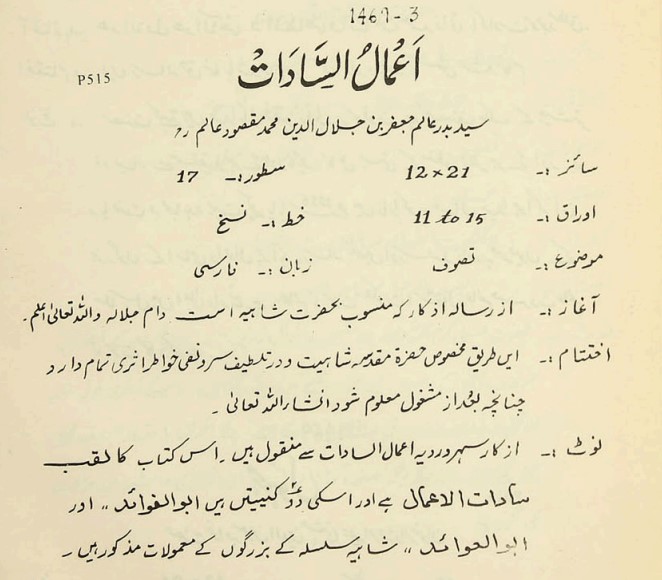 1461-3
اَعْمَالُ السَّادَاتْ
P515
سید بدر عالم جعفر بن جلال الدین محمد مقصود عالم رح
سائز :۔ 12×21 سطور :۔ 17
اوراق :۔ 11 to 15 خط :۔ نسخ
موضوع :۔ تصوف زبان :۔ فارسی
آغاز :۔ از رسالہ اذکار کہ منسوب بحضرت شاہیہ است دام جلالہ واللہ تعالیٰ اعلم ۔
اختتام :۔ ایں طریق مخصوص حضرۃ مقدسہ شاہیت و در تلطیف سر و نفی خواطر اثری تمام دارد
چنانچہ بعد از مشغول معلوم شود انشاء اللہ تعالیٰ ۔
نوٹ :۔ اذکار سہروردیہ اعمال السادات سے منقول ہیں ۔ اس کتاب کا لقب
سادات الاعمال ہے اور اسکی دو کنیتیں ہیں ابو الفوائد ،، اور
ابو العوائد ،، شاہیہ سلسلہ کے بزرگوں کے معمولات مذکور ہیں ۔